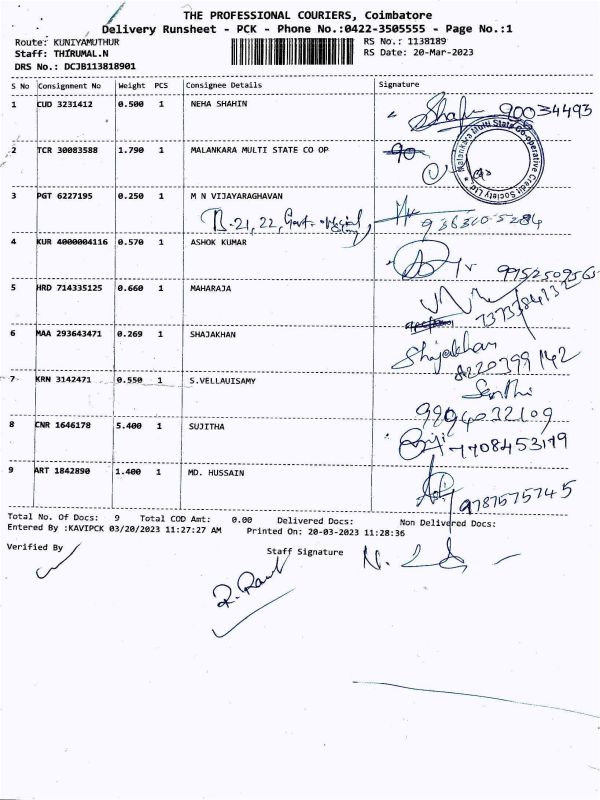 THE PROFESSIONAL COURIERS, Coimbatore
Delivery Runsheet - PCK - Phone No.:0422-3505555 - Page No.:1
Route: KUNIYAMUTHUR RS No.: 1138189
Staff: THIRUMAL.N RS Date: 20-Mar-2023
DRS No.: DCJB113818901
S No Consignment No Weight PCS Consignee Details Signature
1 CUD 3231412 0.500 1 NEHA SHAHIN
2 TCR 30083588 1.790 1 MALANKARA MULTI STATE CO OP
Malankara Multi State Co-operative Credit Society Ltd
3 PGT 6227195 0.250 1 M N VIJAYARAGHAVAN
B-21, 22, Govt-
4 KUR 4000004116 0.570 1 ASHOK KUMAR
5 HRD 714335125 0.660 1 MAHARAJA
6 MAA 293643471 0.269 1 SHAJAKHAN
Shajakhan
8220399142
7 KRN 3142471 0.550 1 S.VELLAUISAMY
Senthi
9894032109
8 CNR 1646178 5.400 1 SUJITHA
7708453179
9 ART 1842890 1.400 1 MD. HUSSAIN
9787575745
Total No. Of Docs: 9 Total COD Amt: 0.00 Delivered Docs: Non Delivered Docs:
Entered By :KAVIPCK 03/20/2023 11:27:27 AM Printed On: 20-03-2023 11:28:36
Verified By Staff Signature